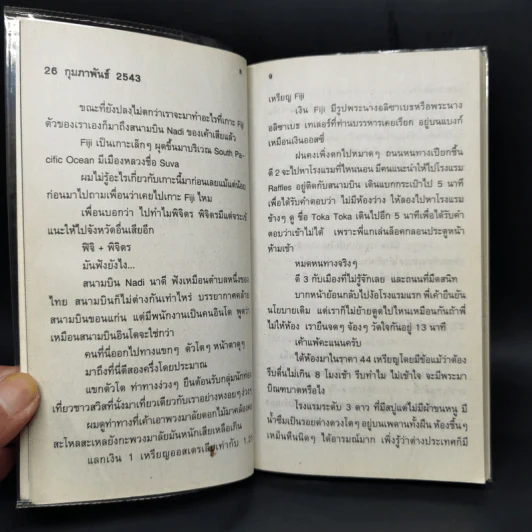 26 กุมภาพันธ์ 2543
8
ขณะที่ยังปลงไม่ตกว่าเราจะมาทำอะไรที่เกาะ Fiji
ตัวของเราเองก็มาถึงสนามบิน Nadi ของเค้าเสียแล้ว
Fiji เป็นเกาะเล็กๆ ผุดขึ้นมาบริเวณ South Pa-
cific Ocean มีเมืองหลวงชื่อ Suva
ผมไม่รู้อะไรเกี่ยวกับเกาะนี้มาก่อนเลยแม้แต่น้อย
ก่อนมาไปถามเพื่อนว่าเคยไปเกาะ Fiji ไหม
เพื่อนบอกว่า ไปทำไมพิจิตร พิจิตรมีแต่จระเข้
แนะให้ไปจังหวัดอื่นเสียอีก
ฟิจิ + พิจิตร
มันฟังยังไง...
สนามบิน Nadi นาดี ฟังเหมือนตำบลหนึ่งของ
ไทย สนามบินก็ไม่ต่างกันเท่าไหร่ บรรยากาศคล้าย
สนามบินขอนแก่น แต่มีพนักงานเป็นคนอินโด พูดว่า
เหมือนสนามบินอินโดจะใช่กว่า
คนที่นี่ออกไปทางแขกๆ ตัวโตๆ หน้าดาๆ
มาถึงที่นี่ตีสองครึ่งโดยประมาณ
แขกตัวโต ท่าทางง่วงๆ ยืนต้อนรับกลุ่มนักท่อง
เที่ยวชาวสวิสที่นั่งมาเที่ยวเดียวกับเราอย่างหงอยๆ
ผมดูท่าทางที่เค้าเอาพวงมาลัยดอกไม้มาคล้อง
สะโหลสะเหลยังกะพวงมาลัยมันหนักเสียเหลือเกิน
แลกเงิน 1 เหรียญออสเตรเลียเท่ากับ 1.2
9
เหรียญ Fiji
เงิน Fiji มีรูปพระนางอลิซาเบธหรือพระนาง
อลิซาเบธ เทเลอร์ที่ท่านบรรหารเคยเรียก อยู่บนแบงก์
เหมือนเงินออสซี่
ฝนคงเพิ่งตกไปหมาดๆ ถนนหนทางเปียกชื้น
ตี 2 จะไปหาโรงแรมที่ไหนนอน มีคนแนะนำให้ไปโรงแรม
Raffles อยู่ติดกับสนามบิน เดินแบกกระเป๋าไป 5 นาที
เพื่อได้รับคำตอบว่า ไม่มีห้องว่าง ให้ลองไปหาโรงแรม
ข้างๆ ดู ชื่อ Toka Toka เดินไปอีก 5 นาทีเพื่อได้รับคำ
ตอบว่าเข้าไม่ได้ เพราะพี่แกเล่นล็อคกลอนประตูหน้า
ห้ามเข้า
หมดหนทางจริงๆ
ตี 3 กับเมืองที่ไม่รู้จักเลย และถนนที่มืดสนิท
บากหน้าย้อนกลับไปง้อโรงแรมแรก พี่เค้ายืนยัน
นโยบายเดิม แต่เราก็ไม่ย้ายตูดไปไหนเหมือนกันถ้าพี่
ไม่ให้ห้อง เรายืนจดๆ จ้องๆ วัดใจกันอยู่ 13 นาที
เค้าแพ้คะแนนครับ
ได้ห้องมาในราคา 44 เหรียญโดยมีข้อแม้ว่าต้อง
รีบตื่นไม่เกิน 8 โมงเช้า รีบทำไม ไม่เข้าใจ จะมีพระมา
บิณฑบาตหรือไง
โรงแรมระดับ 3 ดาว ที่มีสบู่แต่ไม่มีผ้าขนหนู มี
น้ำซึมเป็นรอยด่างดวงโตๆ อยู่บนเพดานทั้งผืน ห้องชื้นๆ
เหม็นหืนนิดๆ ได้อารมณ์มาก เพิ่งรู้ว่าต่างประเทศก็มี